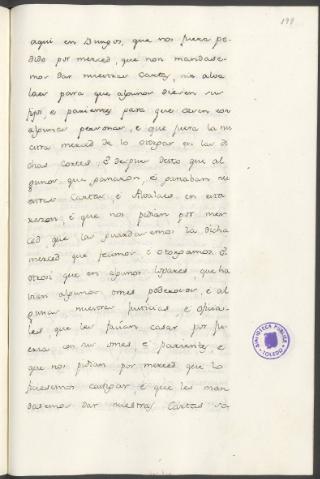 199
aqui en Burgos, que nos fuera pe-
dido por merced, que non mandase-
mos dar nuestras Cartas, nin alva
laes para que algunos diesen sus
fijos, e parientes para que casen con
algunas personas, e que fuera la nu
estra merced de lo otorgar en las di
chas Cortes. E despues desto que al
gunos que ganaron, e ganaban nu
estras Cartas, e Alvalaes en esta
razon, e que nos pedian por mer
ced que les guardasemos la dicha
merced que fecimos e otorgamos. O
otrosi que en algunos logares que ha
bian algunos omes poderosos, e al
gunas nuestras justicias, e oficia
les, que les facian casar por fu
erza con sus omes e parientes, e
que nos pedian por merced que lo
quisiesemos castigar e que les man
dasemos dar nuestras Cartas so
BIBLIOTECA PUBLICA
TOLEDO